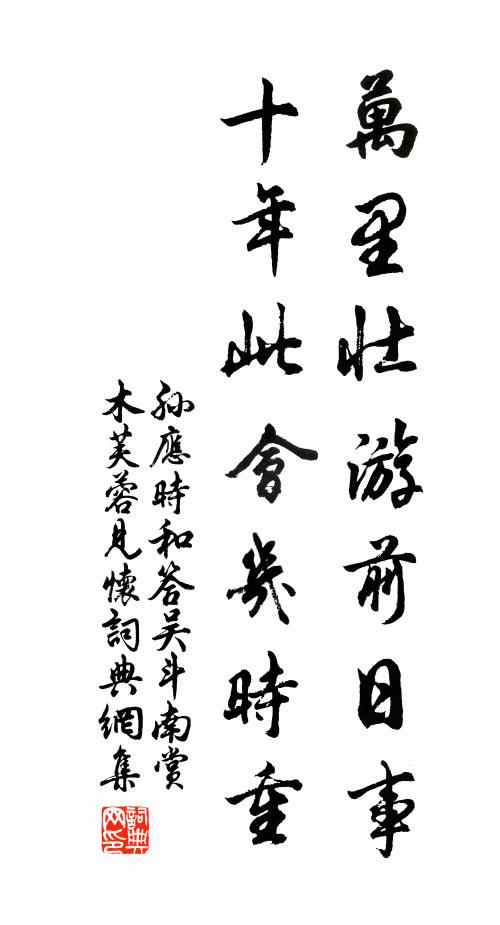 萬里壮游前日事
十年此會幾時重
孫應時和答吴斗南賞
木芙蓉見懷詞典網集
詞典网印